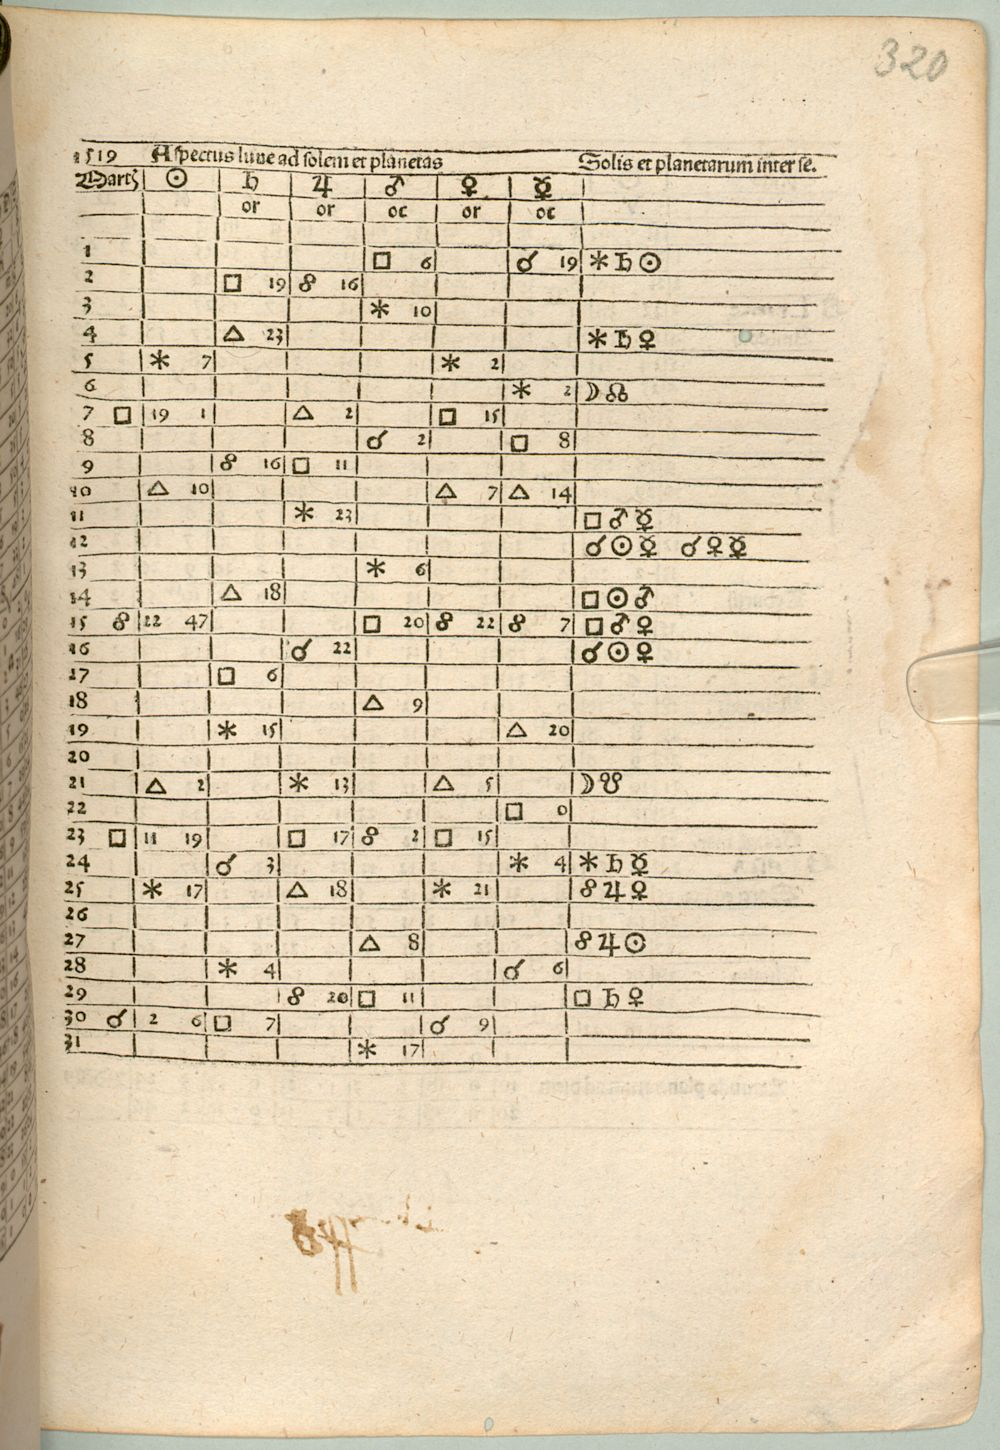 320
1519 Aspectus lune ad solem et planetas Solis et planetarum inter se.
Martz ☉ ♄ ♃ ♂ ♀ ☿
or or oc or oc
1 □ 6 ☌ 19 ⚹ ♄ ☉
2 □ 19 ☍ 16
3 ⚹ 10
4 △ 23 ⚹ ♄ ♀
5 ⚹ 7 ⚹ 2
6 ⚹ 2 ☽ ☊
7 □ 19 1 △ 2 □ 15
8 ☌ 2 □ 8
9 ☍ 16 □ 11
10 △ 10 △ 7 △ 14
11 ⚹ 23 □ ♂ ☿
12 ☌ ☉ ☿ ☌ ♀ ☿
13 ⚹ 6
14 △ 18 □ ☉ ♂
15 ☍ 22 47 □ 20 ☍ 22 ☍ 7 □ ♂ ♀
16 ☌ 22 ☌ ☉ ♀
17 □ 6
18 △ 9
19 ⚹ 15 △ 20
20
21 △ 2 ⚹ 13 △ 5 ☽ ☋
22 □ 0
23 □ 11 19 □ 17 ☍ 2 □ 15
24 ☌ 3 ⚹ 4 ⚹ ♄ ☿
25 ⚹ 17 △ 18 ⚹ 21 ☍ ♃ ♀
26
27 △ 8 ☍ ♃ ☉
28 ⚹ 4 ☌ 6
29 ☍ 20 □ 11 □ ♄ ♀
30 ☌ 2 6 □ 7 ☌ 9
31 ⚹ 17